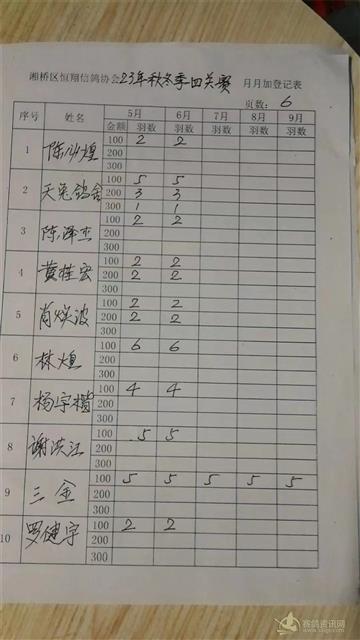 湘桥区恒翔信鸽协会23年秋冬季四关赛 月月加登记表
页数：6
序号 姓名 5月 6月 7月 8月 9月
金额 羽数 羽数 羽数 羽数 羽数
1 陈少煌 100 2 2
200
300
2 天兔鸽舍 100 5 5
200 3 3
300 1 1
3 陈泽杰 100 2 2
200
300
4 黄桂宏 100 2 2
200 2 2
300
5 肖焕波 100 2 2
200 2 2
300
6 林煌 100 6 6
200
300
7 杨宇楷 100 4 4
200
300
8 谢洪江 100 5 5
200
300
9 三金 100 5 5 5 5 5
200
300
10 罗健宇 100 2 2
200
300
赛鸽资讯网